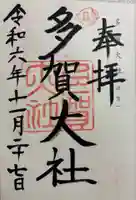 奉拝
多賀大社
令和六年十一月二十七日